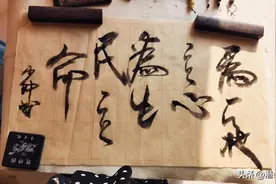 為天地
立心
為生
民立
命
头条 @潮